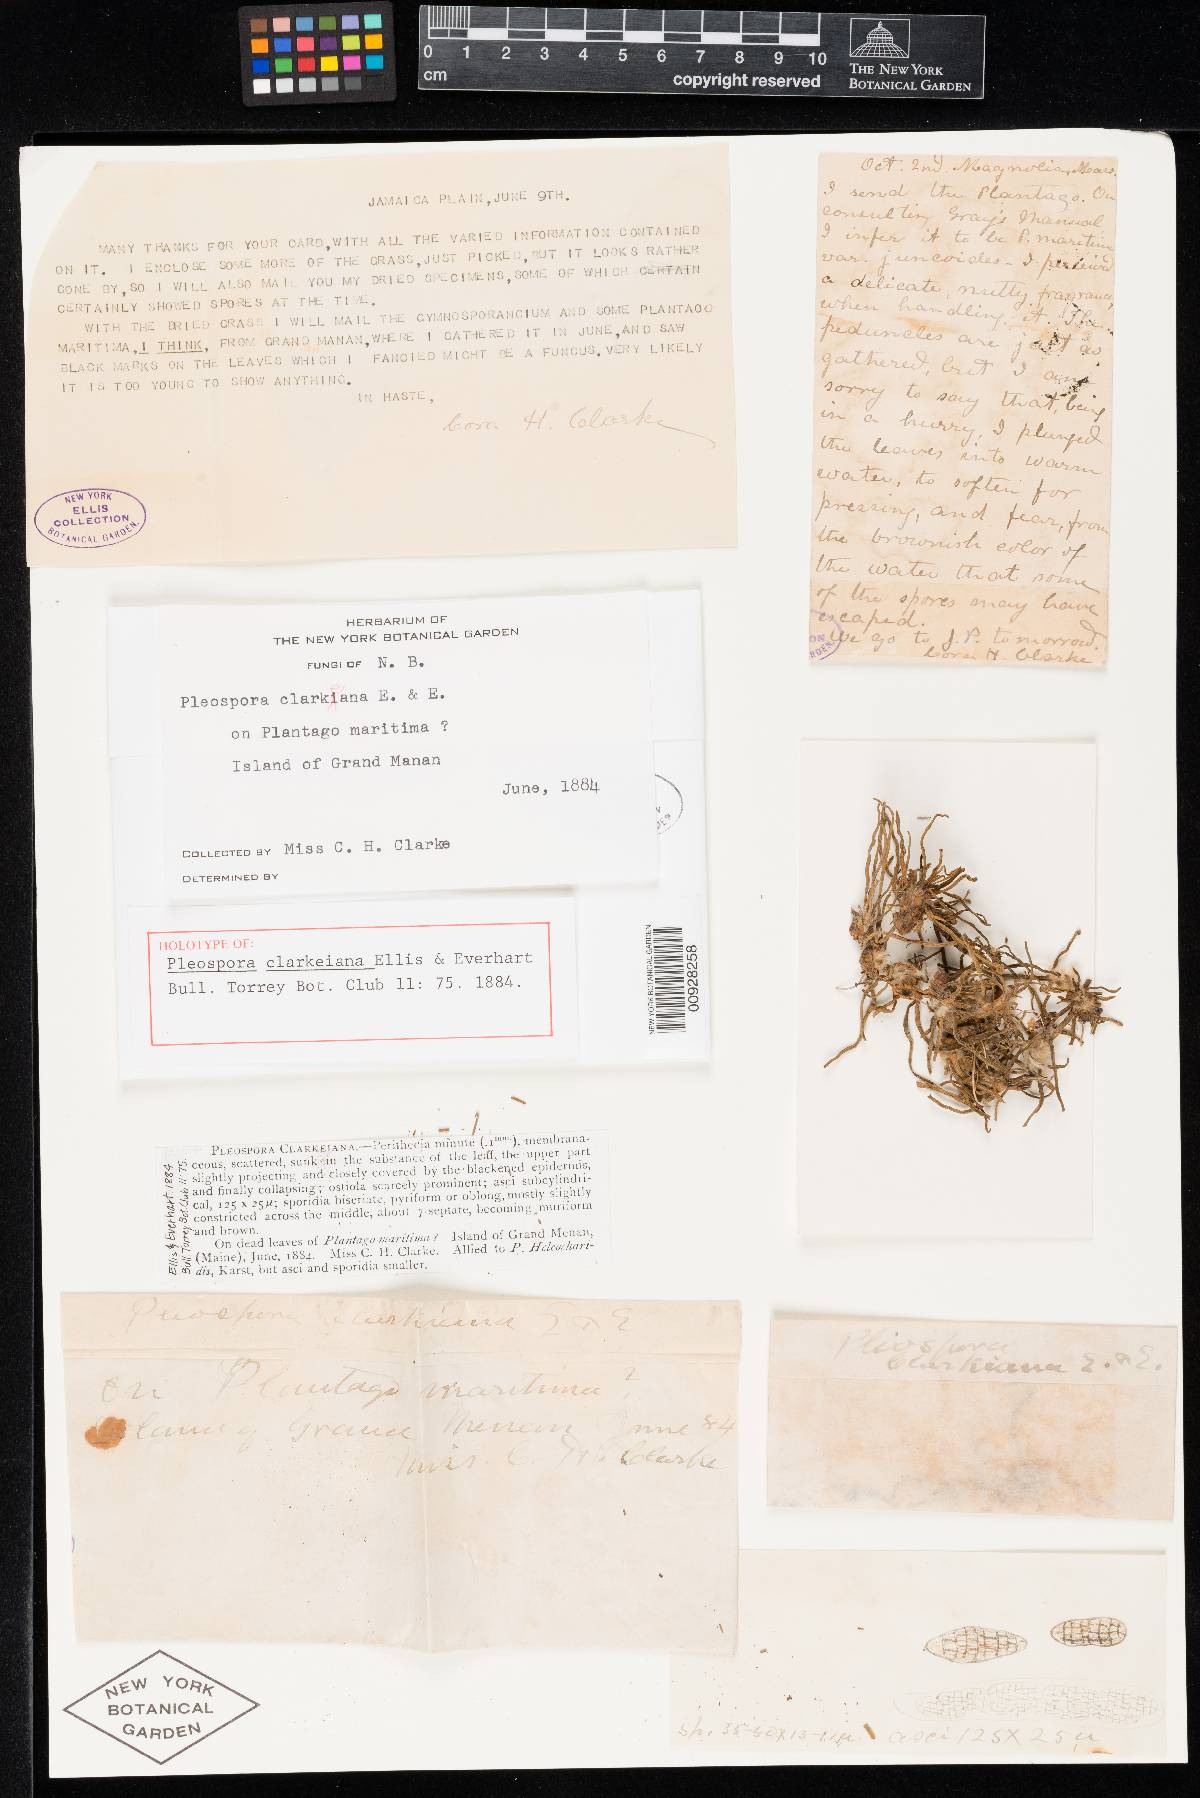 0 1 2 3 4 5 6 7 8 9 10
cm
copyright reserved
THE NEW YORK
BOTANICAL GARDEN
JAMAICA PLAIN, JUNE 9TH.
MANY THANKS FOR YOUR CARD, WITH ALL THE VARIED INFORMATION CONTAINED
ON IT. I ENCLOSE SOME MORE OF THE GRASS, JUST PICKED, BUT IT LOOKS RATHER
GONE BY, SO I WILL ALSO MAIL YOU MY DRIED SPECIMENS, SOME OF WHICH CERTAIN
CERTAINLY SHOWED SPORES AT THE TIME.
WITH THE DRIED GRASS I WILL MAIL THE GYMNOSPORANGIUM AND SOME PLANTAGO
MARITIMA, I THINK, FROM GRAND MANAN, WHERE I GATHERED IT IN JUNE, AND SAW
BLACK MARKS ON THE LEAVES WHICH I FANCIED MIGHT BE A FUNGUS. VERY LIKELY
IT IS TOO YOUNG TO SHOW ANYTHING.
IN HASTE,
Cora H. Clarke
NEW YORK
ELLIS
COLLECTION
BOTANICAL GARDEN.
Oct. 2nd. Magnolia, Mass.
I send the Plantago. On
consulting Gray's Manual
I infer it to be P. maritima
var. juncoides - I perceived
a delicate, nutty, fragrance,
when handling it. The
peduncles are just as
gathered, but I am
sorry to say that, being
in a hurry, I plunged
the leaves into warm
water, to soften for
pressing, and fear, from
the brownish color of
the water that some
of the spores may have
escaped.
We go to J. P. tomorrow.
Cora H. Clarke
HERBARIUM OF
THE NEW YORK BOTANICAL GARDEN
FUNGI OF N. B.
Pleospora clarkiana E. & E.
on Plantago maritima ?
Island of Grand Manan
June, 1884
COLLECTED BY Miss C. H. Clarke
DETERMINED BY
HOLOTYPE OF:
Pleospora clarkeiana Ellis & Everhart
Bull. Torrey Bot. Club 11: 75. 1884.
NEW YORK BOTANICAL GARDEN
00928258
Ellis & Everhart 1884
Bull Torrey Bot. Club 11:75.
PLEOSPORA CLARKEIANA.—Perithecia minute (.1mm.), membrana-
ceous, scattered, sunk in the substance of the leaf, the upper part
slightly projecting and closely covered by the blackened epidermis,
and finally collapsing; ostiola scarcely prominent; asci subcylindri-
cal, 125 x 25μ; sporidia biseriate, pyriform or oblong, mostly slightly
constricted across the middle, about 7-septate, becoming muriform
and brown.
On dead leaves of Plantago maritima? Island of Grand Menan,
(Maine), June, 1884. Miss C. H. Clarke. Allied to P. Heleochar-
dis, Karst, but asci and sporidia smaller.
Pleospora Clarkiana E & E
On Plantago maritima?
Island of Grand Menan June 84
Miss. C. H. Clarke
Pleospora
Clarkiana E. & E.
asci 125 X 25 μ
NEW YORK
BOTANICAL
GARDEN